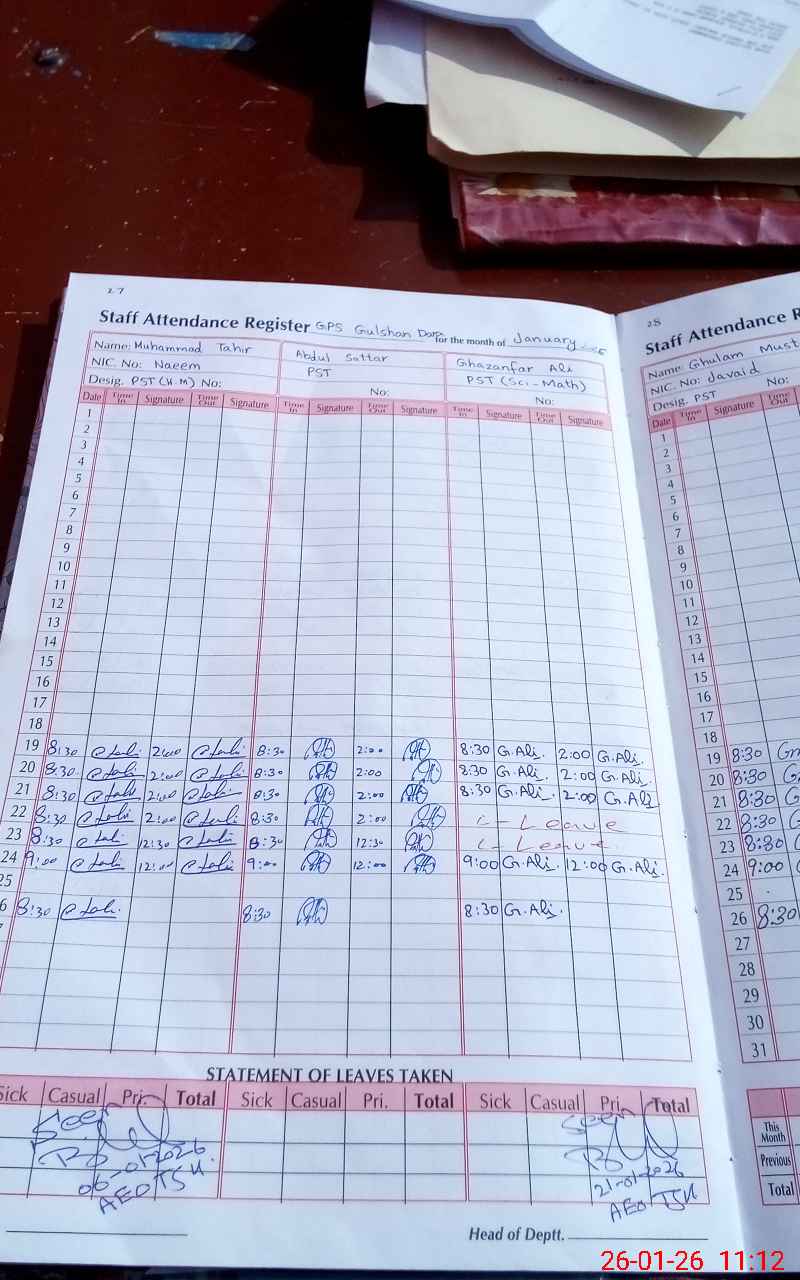 27
Staff Attendance Register GPS Gulshan for the month of January
Name: Muhammad Tahir Abdul Sattar Ghazanfar Ali
NIC. No: Naeem PST PST (Sci-Math)
Desig. PST (H.M) No: No: No:
Date Time In Signature Time Out Signature Time In Signature Time Out Signature Time In Signature Time Out Signature
1
2
3
4
5
6
7
8
9
10
11
12
13
14
15
16
17
18
19 8:30 2:00 8:30 2:00 8:30 G.Ali. 2:00 G.Ali.
20 8:30 2:00 8:30 2:00 8:30 G.Ali. 2:00 G.Ali.
21 8:30 2:00 8:30 2:00 8:30 G.Ali. 2:00 G.Ali
22 8:30 2:00 8:30 2:00 C-Leave
23 8:30 12:30 8:30 12:30 C-Leave
24 9:00 12:00 9:00 12:00 9:00 G.Ali. 12:00 G.Ali.
25
6 8:30 8:30 8:30 G.Ali.
STATEMENT OF LEAVES TAKEN
Sick Casual Pri. Total Sick Casual Pri. Total Sick Casual Pri. Total
Seen Seen
06-01-2026 21-01-2026
AEO TSK AEO TSK
Head of Deptt.
28
Staff Attendance R
Name: Ghulam Must
NIC. No: Javaid
Desig. PST No:
Date Time In Signature Time Out
1
2
3
4
5
6
7
8
9
10
11
12
13
14
15
16
17
18
19 8:30
20 8:30
21 8:30
22 8:30
23 8:30
24 9:00
25
26 8:30
27
28
29
30
31
This Month
Previous
Total
26-01-26 11:12